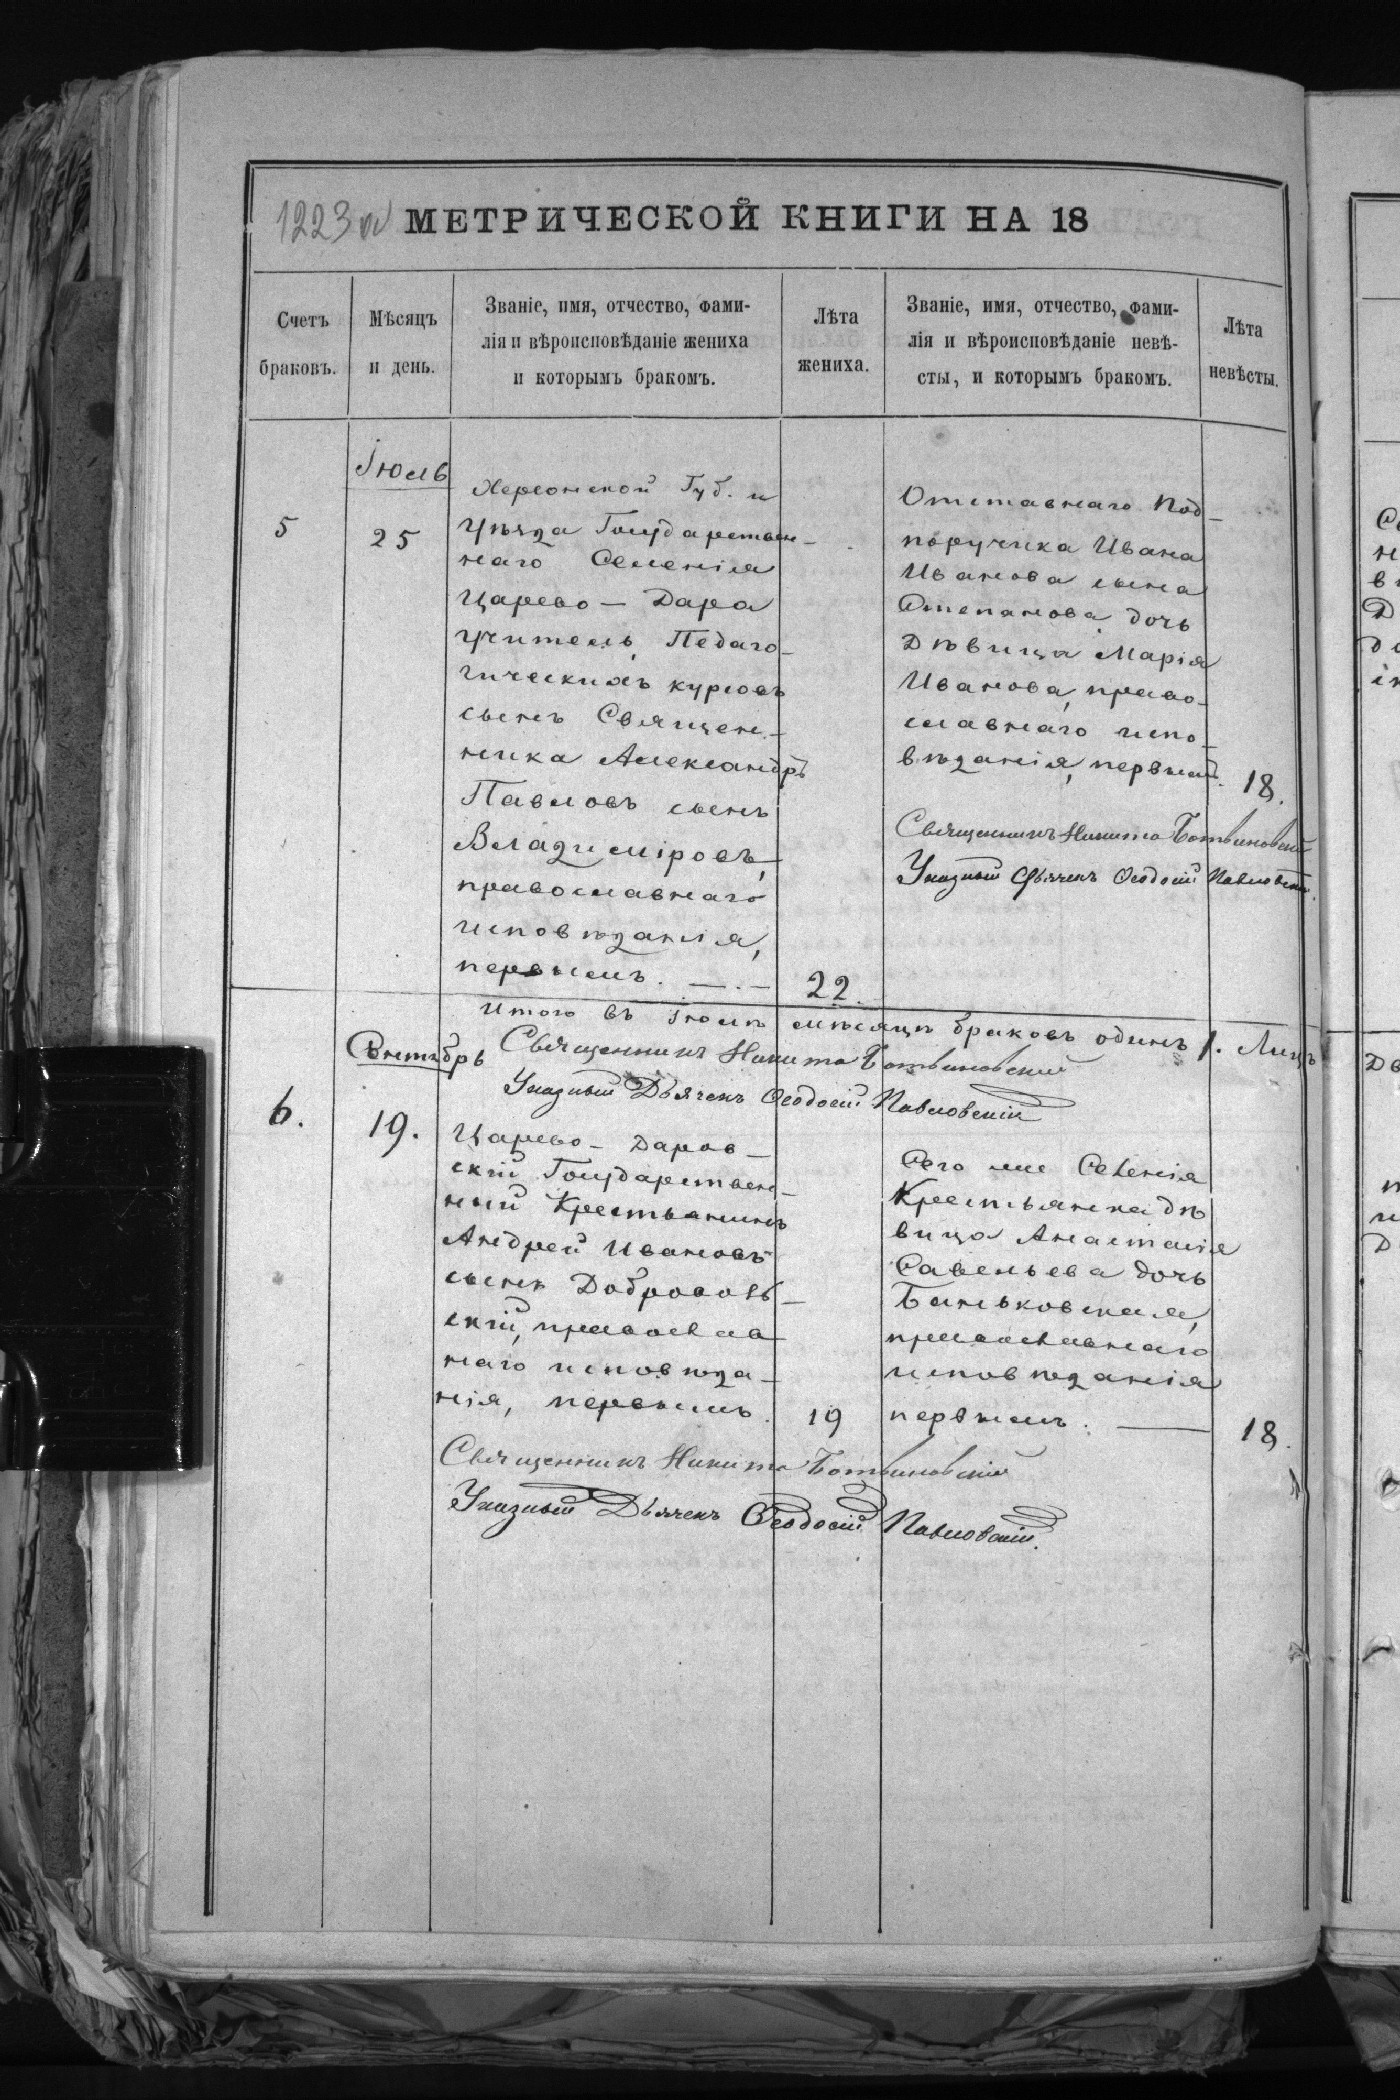 1223 МЕТРИЧЕСКОЙ КНИГИ НА 18
Счетъ
браковъ.
Мѣсяцъ
и день.
Званіе, имя, отчество, фами-
лія и вѣроисповѣданіе жениха
и которымъ бракомъ.
Лѣта
жениха.
Званіе, имя, отчество, фами-
лія и вѣроисповѣданіе невѣ-
сты, и которымъ бракомъ.
Лѣта
невѣсты.
5
Іюль
25
Херсонской Губ. и
Уѣзда Государствен-
наго Селенія
Царево-Дара
учитель, Педаго-
гическихъ курсовъ
сынъ Священ-
ника Александръ
Павловъ сынъ
Владиміровъ,
православнаго
исповѣданія,
первымъ. —.—
22.
Отставнаго Под-
поручика Ивана
Иванова сына
Степанова дочь
Дѣвица Марія
Иванова, право-
славнаго испо-
вѣданія, первымъ.
18.
Священникъ Никита Ботвиновскій
Указный Дьячекъ Ѳеодосій Павловскій
Итого въ Іюлѣ мѣсяцѣ браковъ одинъ 1.
Священникъ Никита Ботвиновскій
Указный Дьячекъ Ѳеодосій Павловскій
6.
Сентябрь
19.
Царево-Даров-
скій Государствен-
ный Крестьянинъ
Андрей Ивановъ
сынъ Добрововь-
скій, православ-
наго исповѣда-
нія, первымъ.
19
Сего же Селенія
Крестьянка дѣ
вица Анастасія
Савельева дочь
Баньковская,
православнаго
исповѣданія
первымъ. —
18.
Священникъ Никита Ботвиновскій
Указный Дьячекъ Ѳеодосій Павловскій.